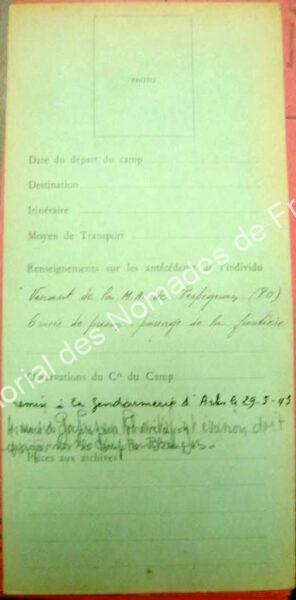 PHOTO
Date du départ du camp
Destination
Itinéraire
Moyen de Transport
Renseignements sur les antécédents de l'individu
Venant de la M.A. de Perpignan (PO)
6 mois de prison passage de la frontière
Observations du Ct du Camp
remis à la Gendarmerie d'Arles le 29-5-43
doit
Pièces aux archives
Mémorial des Nomades de Fr